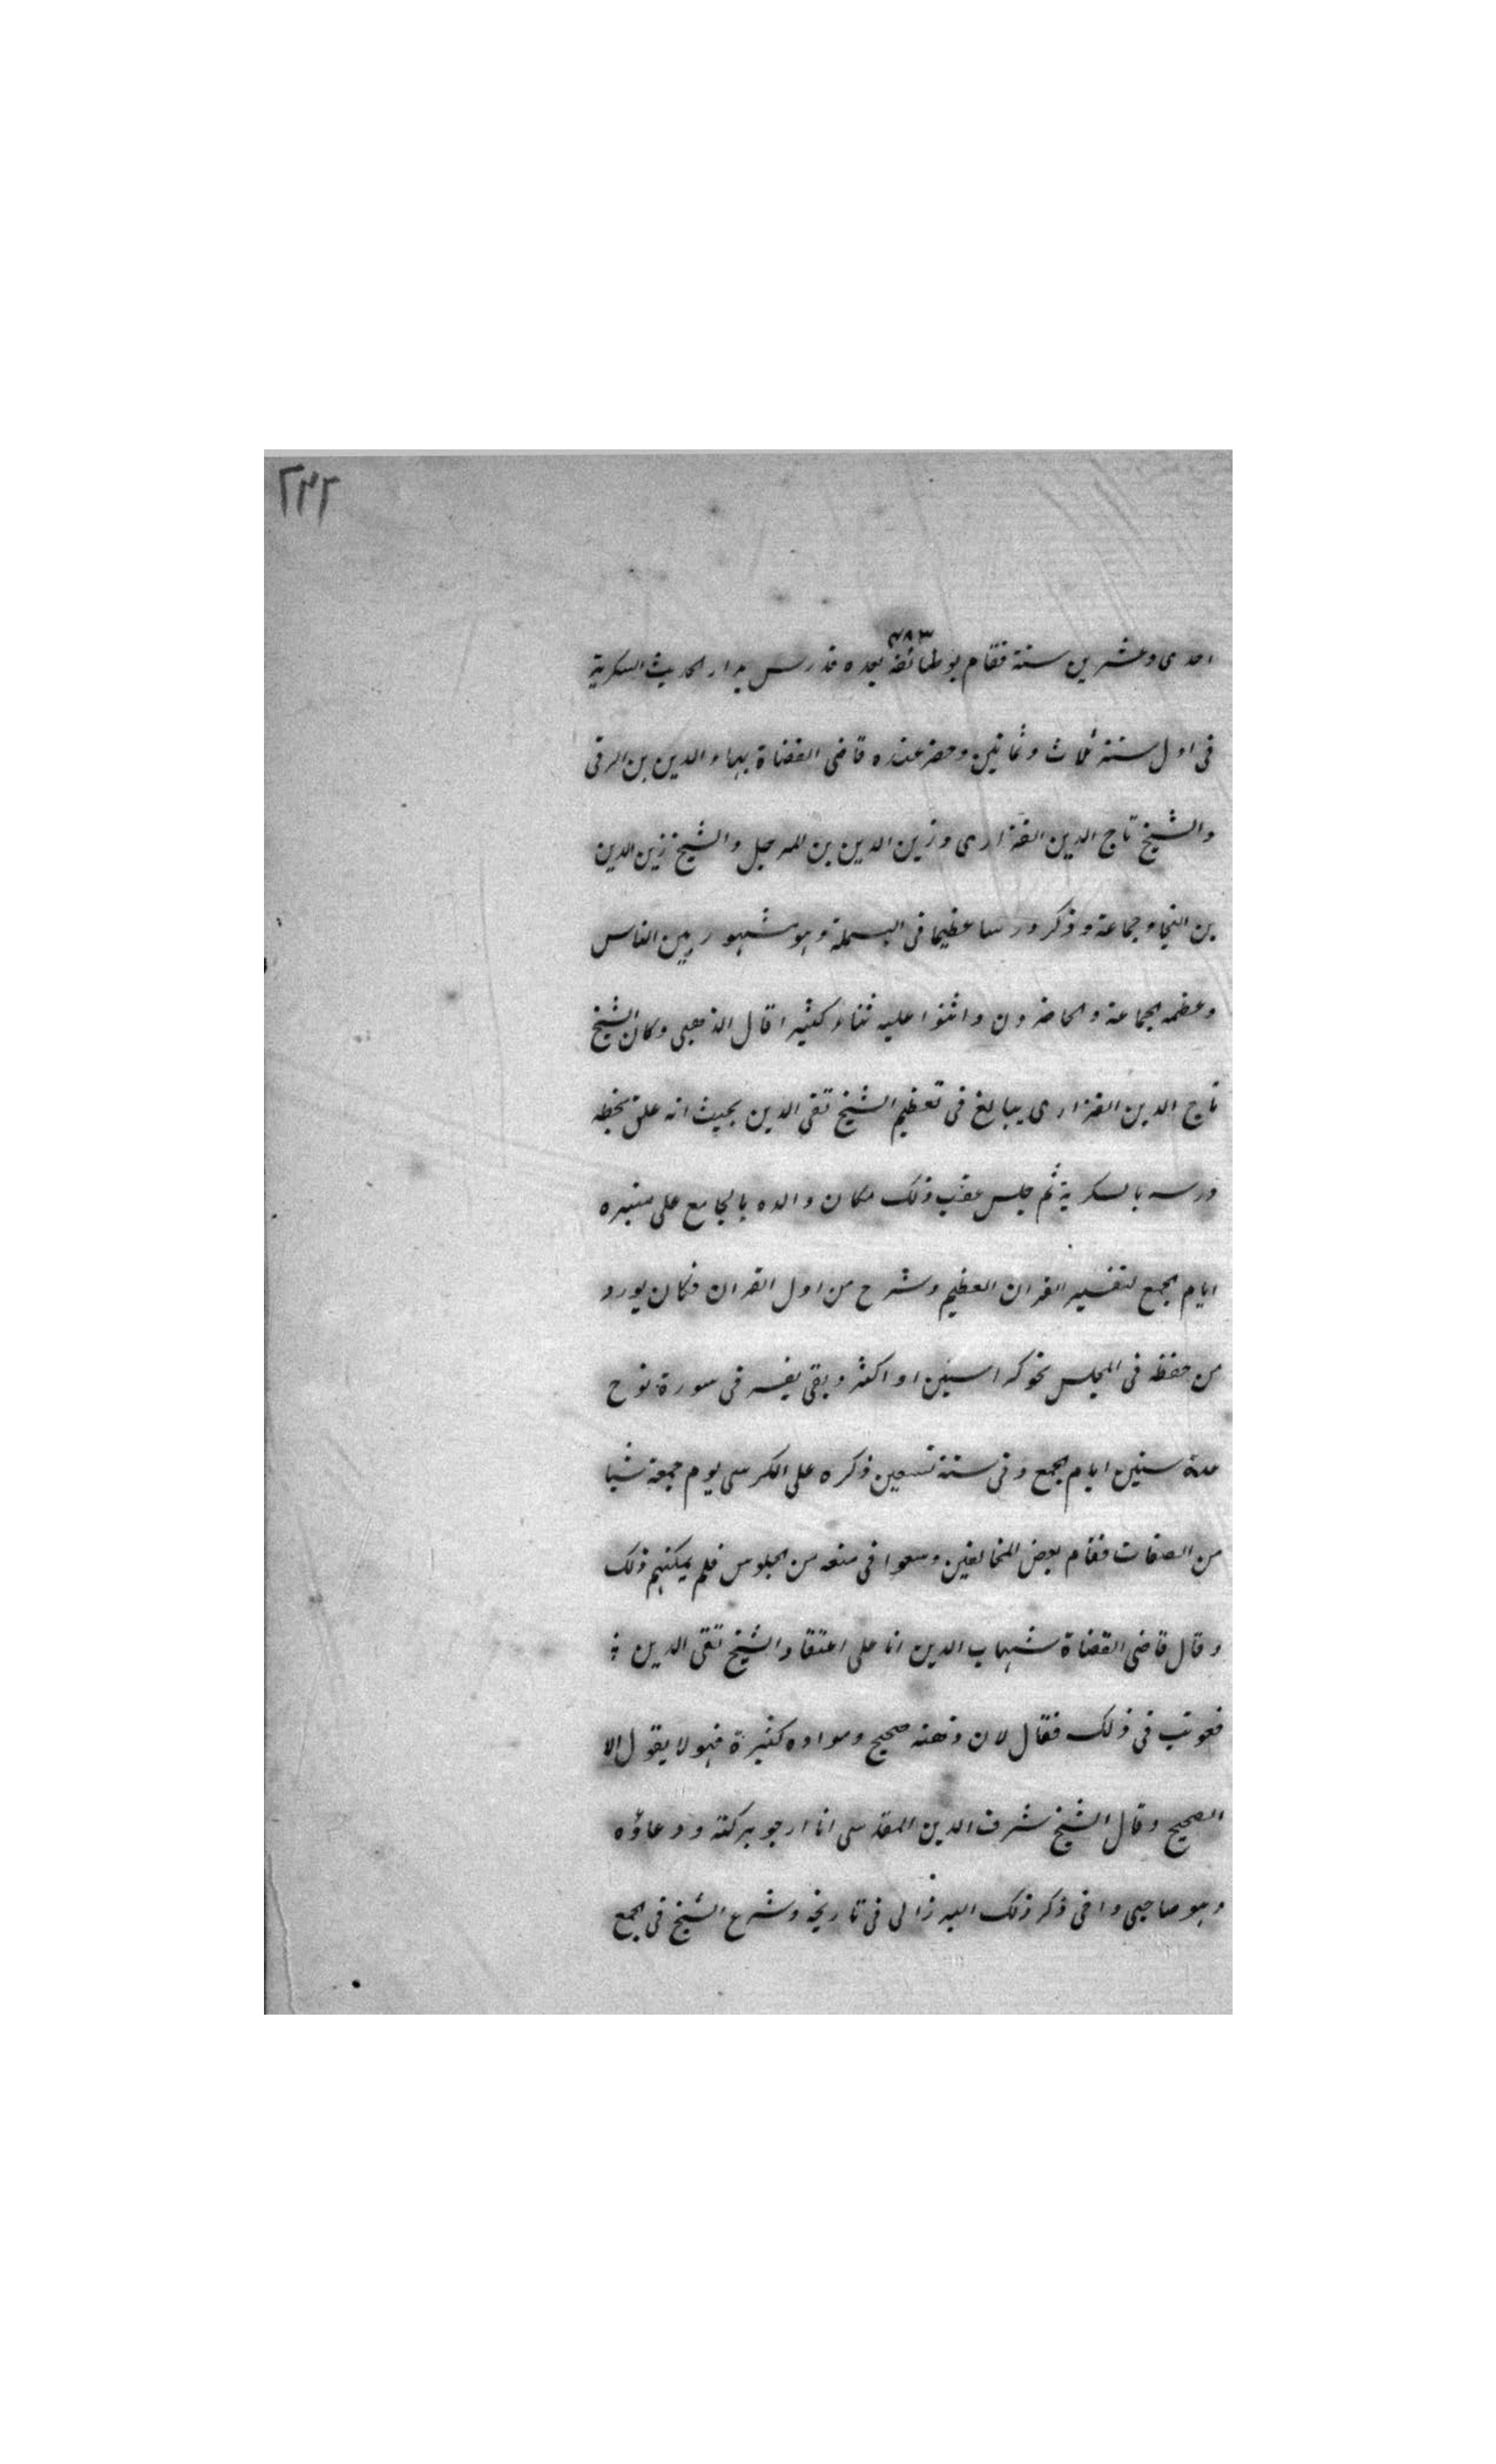 ٢٣٢
٦٨٣
احدى وعشرين سنة فقام بوظائفه بعده فدرس بدار الحديث السكرية
فى اول سنة ثلاث وثمانين وحضر عنده قاضى القضاة بهاء الدين بن الزقى
والشيخ تاج الدين الفزارى وزين الدين بن المرحل والشيخ زين الدين
بن النجا وجماعة وذكر درسا عظيما فى البسملة وهو مشهور بين الناس
وعظمه الجماعة والحاضرون واثنوا عليه ثناء كثيرا قال الذهبى وكان الشيخ
تاج الدين الفزارى يبالغ فى تعظيم الشيخ تقى الدين بحيث انه علق بخطه
درسه بالسكرية ثم جلس عقب ذلك مكان والده بالجامع على منبره
ايام الجمع لتفسير القران العظيم وشرح من اول القران فكان يورد
من حفظه فى المجلس نحو كراسين او اكثر وبقى يفسر فى سورة نوح
عدة سنين ايام الجمع وفى سنة تسعين ذكره على الكرسى يوم جمعة شيا
من الصفات فقام بعض المخالفين وسعوا فى منعه من الجلوس فلم يمكنهم ذلك
وقال قاضى القضاة شهاب الدين انا على اعتقاد الشيخ تقى الدين
فعوتب فى ذلك فقال لان ذهنه صحيح ومواده كثيرة فهو لا يقول الا
الصحيح وقال الشيخ شرف الدين المقدسى انا ارجو بركته ودعاؤه
وهو صاحبى واخى ذكر ذلك البرزالى فى تاريخه وشرع الشيخ فى الجمع